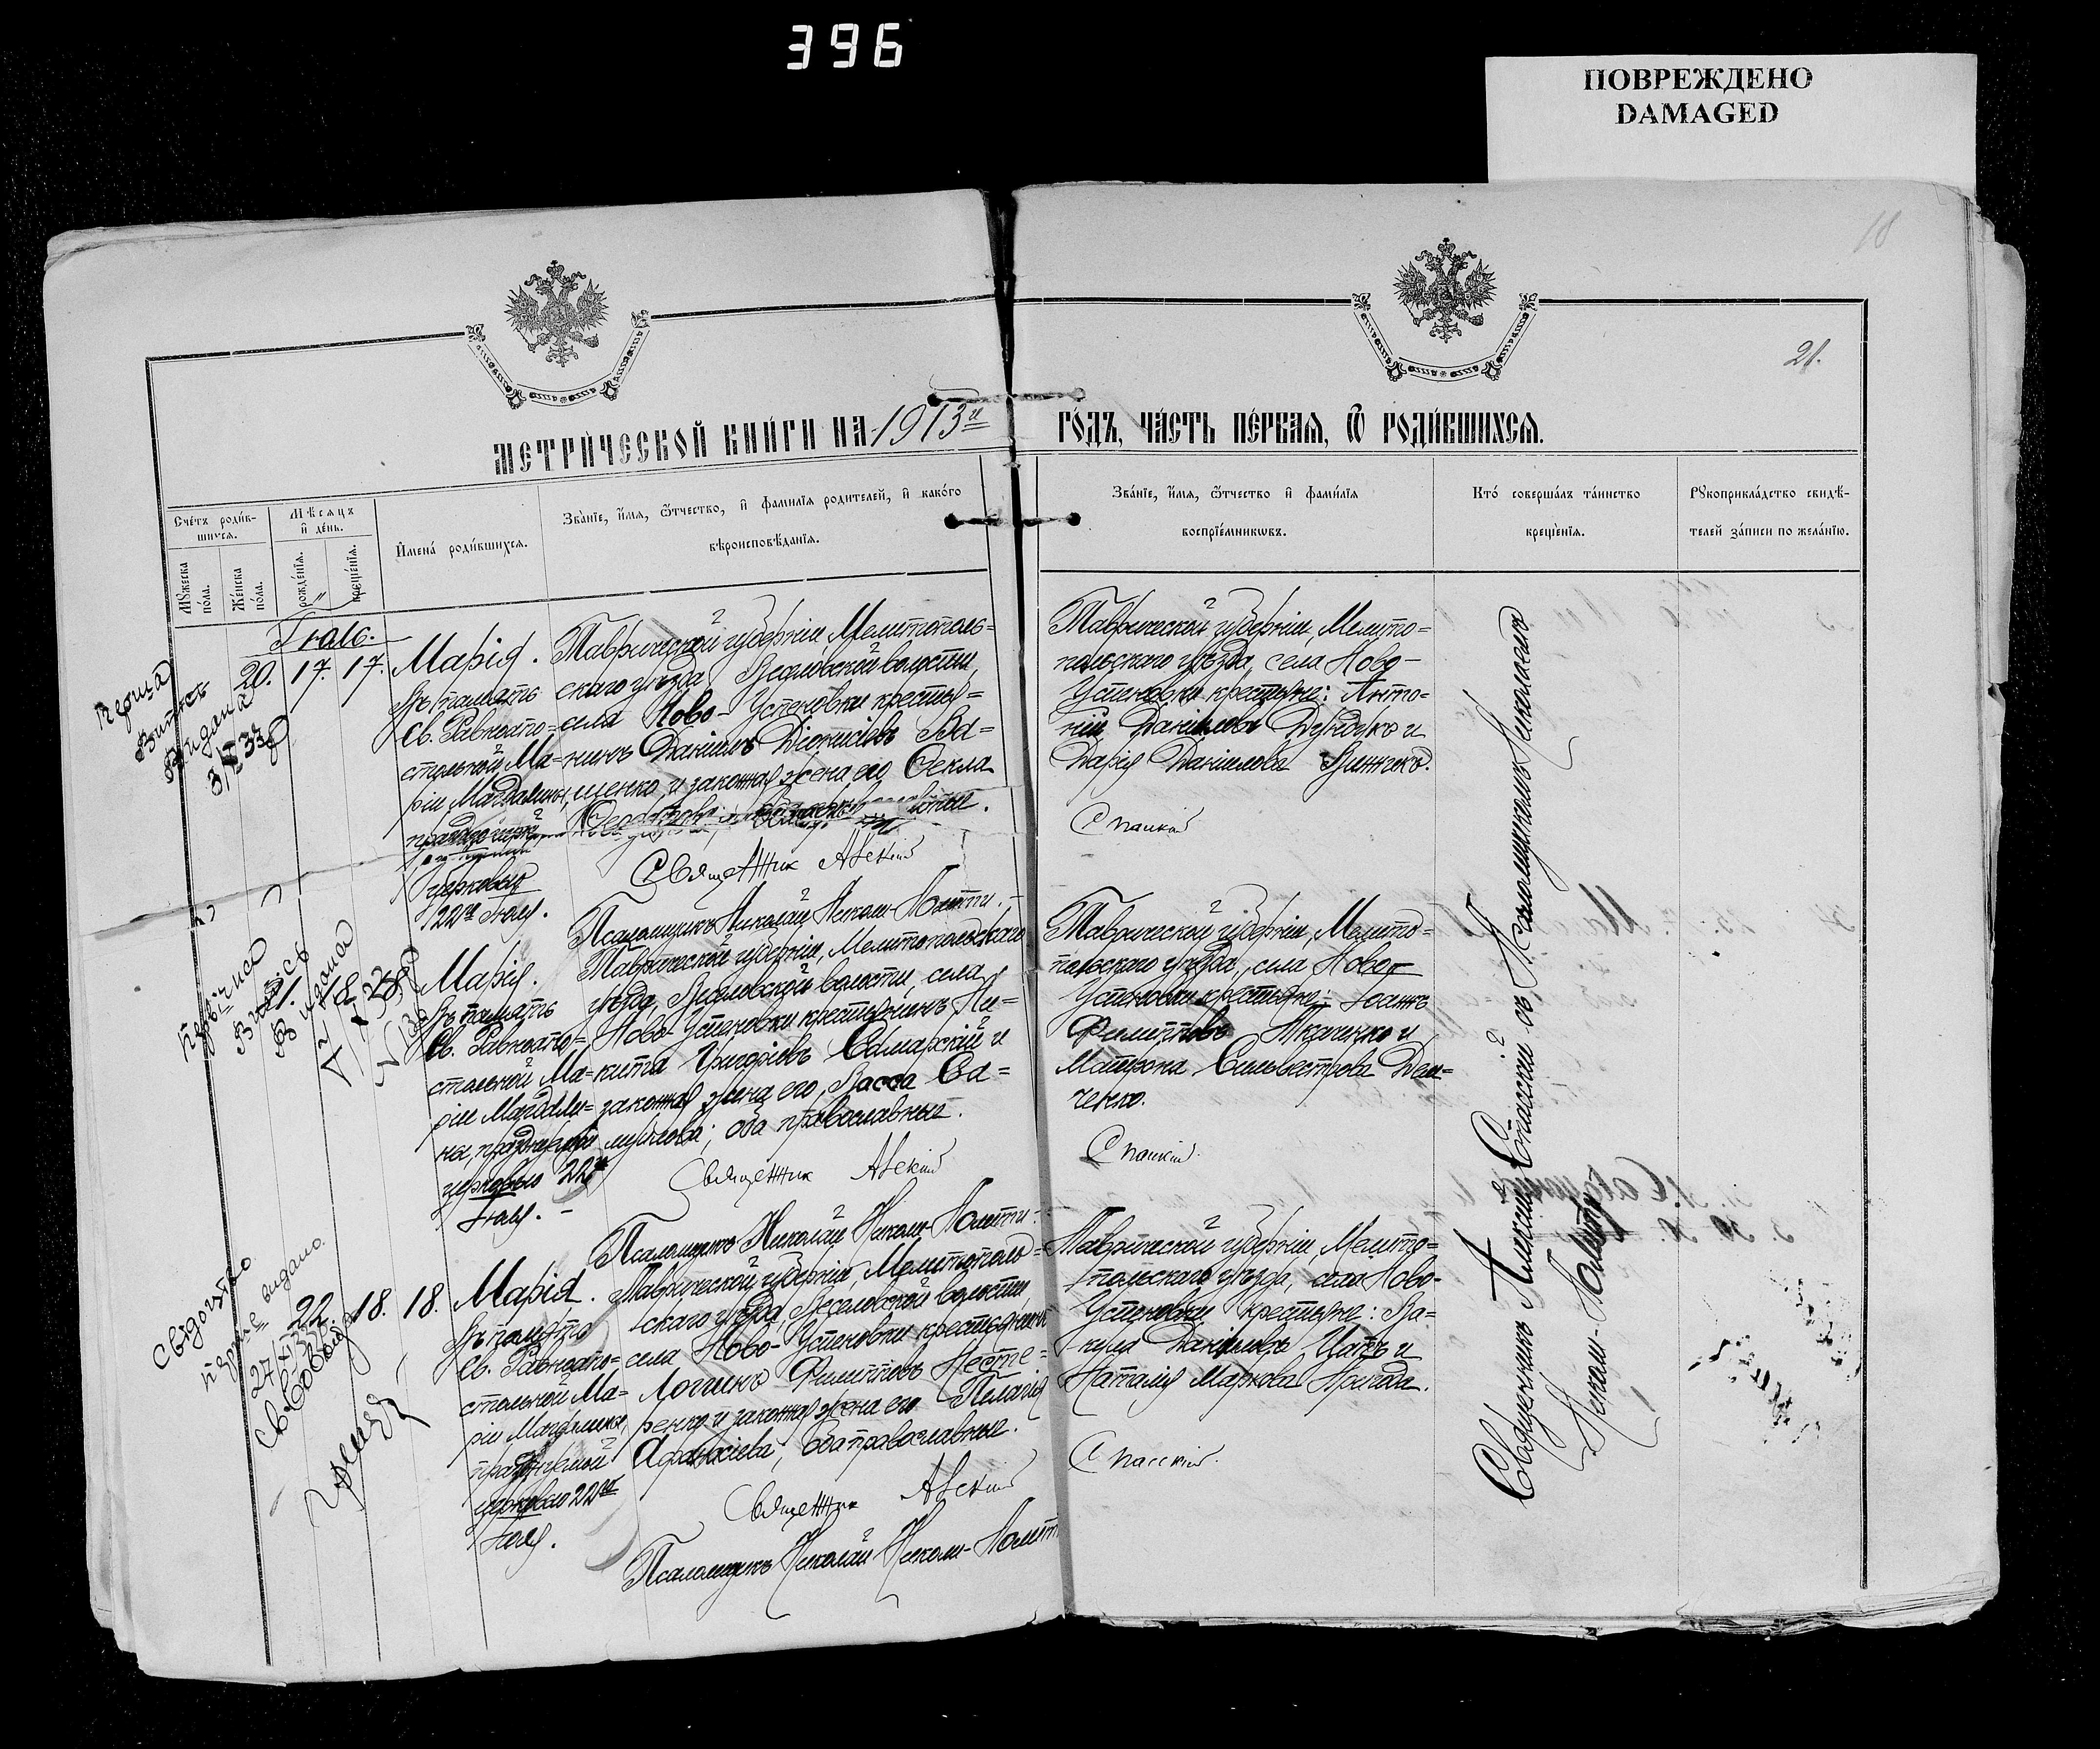 396
ПОВРЕЖДЕНО
DAMAGED
18
21.
МЕТРИ́ЧЕСКОЙ КНИ́ГИ НА 1913й ГО́ДЪ, ЧА́СТЬ ПЕ́РВАЯ, Ѡ РОДИ́ВШИХСЯ.
Сче́тъ роди́в-
шихся.
Му́жеска по́ла.
Же́нска по́ла.
Мѣсяцъ
и де́нь.
рожде́нія.
креще́нія.
Имена́ роди́вшихся.
Зва́ніе, имя, о́тчество, и фами́лія роди́телей, и како́го
вѣроисповѣ́данія.
Зва́ніе, имя, о́тчество и фами́лія
воспріе́мниковъ.
Кто́ соверша́лъ та́инство
креще́нія.
Рукоприкла́дство свидѣ́-
телей за́писи по жела́нію.
Іюль.
20. 17. 17.
Марія.
Въ память
Св. Равноапо-
стольной Ма-
ріи Магдалины,
церковью
22го Іюля.
Таврической губерніи, Мелитополь-
скаго уѣзда, Веселовской волости,
села Ново-Успеновки крестья-
нинъ Даніилъ Діонисіевъ Ва-
щенко и законная жена его Ѳекла
Священник АСпаскій
Псаломщикъ Николай Николи-
Таврической губерніи, Мелито-
польскаго уѣзда, села Ново-
Успеновки крестьяне: Анто-
ній Даніиловъ Дундукъ и
Дарія Даніилова Винникъ.
Спаский
Перша
Витяг
Видана
3/ 33
21. 18. 18.
Марія.
Въ память
Св. Равноапо-
стольной Ма-
ріи Магдали-
на, празднуемой
церковью 22го
Іюля.
Таврической губерніи, Мелитопольскаго
уѣзда, Веселовской волости, села
Ново-Успеновки крестьянинъ Ни-
кита Григоріевъ Самарскій и
законная жена его, Васса Са-
муилова; оба православные.
Священник АСпаскій
Псаломщикъ Николай Николи-
Таврической губерніи, Мелито-
польскаго уѣзда, села Ново-
Успеновки крестьяне: Іоаннъ
Филипповъ Ткаченко и
Матрона Сильвестрова Дем-
ченко.
Спаский.
22. 18. 18.
Марія.
Въ память
Св. Равноапо-
стольной Ма-
ріи Магдалины,
празднуемой
церковью 22го
Іюля.
Таврической губерніи, Мелитополь-
скаго уѣзда, Веселовской волости,
села Ново-Успеновки крестьянинъ
Логинъ Филипповъ Несте-
ренко и законная жена его Пелагія
Афанасіева; оба православные.
Священник АСпаскій
Псаломщикъ Николай Николи-
Таврической губерніи, Мелито-
польскаго уѣзда, села Ново-
Успеновки крестьяне: Ва-
кула Даніиловъ Цапъ и
Наталія Маркова Нагода.
Спасский.
Священникъ Алексій Спасскій съ Псаломщикомъ Николаемъ